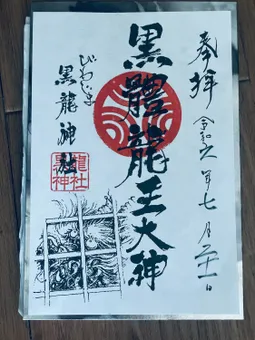 奉拝
令和六年七月二十一日
黒體龍王大神
びわじま
黒龍神社
黒龍神社